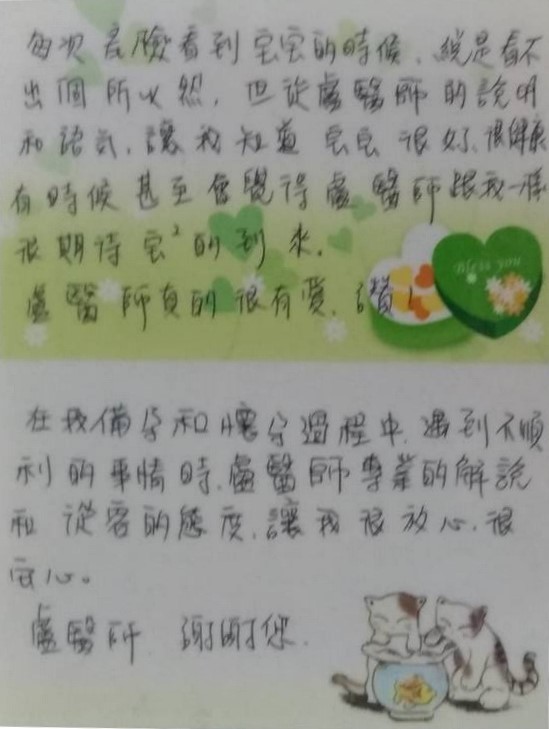 每次產險看到宝宝的時候，總是看不
出個所以然，但從盧醫師的說明
和語気，讓我知道宝宝很好、很健康
有時候甚至會覺得盧醫師跟我一樣
很期待宝²的到來。
盧醫師真的很有愛，讚！
Bless you
在我備孕和懷孕過程中，遇到不順
利的事情時，盧醫師專業的解說
和從容的態度，讓我很放心、很
安心。
盧醫師 謝謝您.